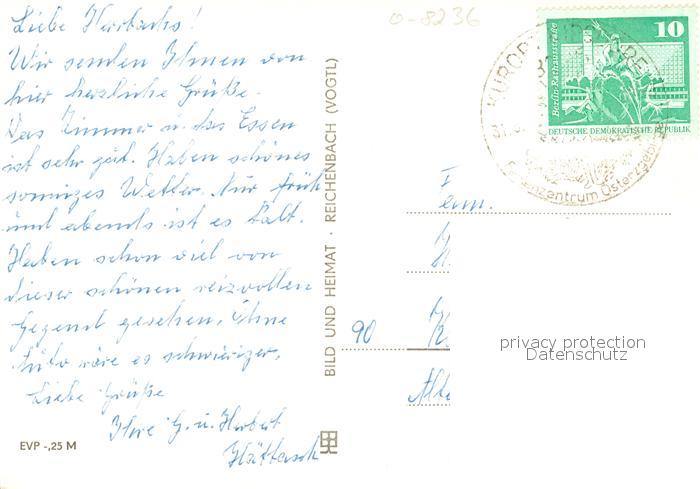 Liebe Herrbachs!
Wir senden Ihnen von
hier herzliche Grüße.
Das Zimmer u. das Essen
ist sehr gut. Haben schönes
sonniges Wetter. Nur früh
und abends ist es kalt.
Haben schon viel von
dieser schönen reizvollen
Gegend gesehen. Ohne
Auto wäre es schwieriger.
Liebe Grüße
Ihre G. u. Herbert
EVP -,25 M
BILD UND HEIMAT · REICHENBACH (VOGTL)
0-8236
10
Berlin-Rathausstraße
DEUTSCHE DEMOKRATISCHE REPUBLIK
KURORT
Ferienzentrum Osterzgebirge
90
privacy protection
Datenschutz